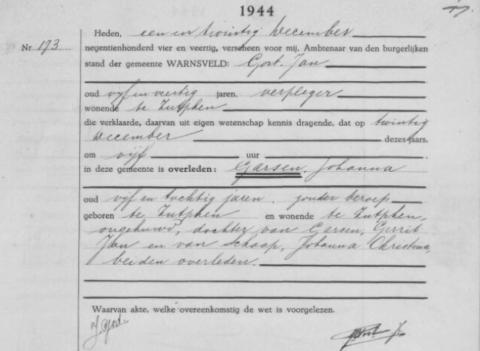 1944
Heden, een en twintig December
Nr 173
negentienhonderd vier en veertig, verscheen voor mij, Ambtenaar van den burgerlijken
stand der gemeente WARNSVELD: Gort, Jan
oud vijf en veertig jaren, verpleger
wonende te Zutphen
die verklaarde, daarvan uit eigen wetenschap kennis dragende, dat op twintig
December dezes jaars,
om vijf uur
in deze gemeente is overleden: Garsen, Johanna
oud vijf en tachtig jaren, zonder beroep
geboren te Zutphen en wonende te Zutphen,
ongehuwd, dochter van Garsen, Gerrit
Jan en van Schaap, Johanna Christina,
beiden overleden.
Waarvan akte, welke overeenkomstig de wet is voorgelezen.
J. Gort.